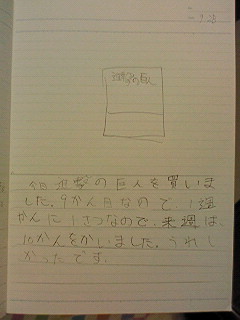 9.28
進撃の巨人
今日進撃の巨人を買いま
した。9かん目なので、1週
かんに1さつなので、来週は
10かんをかいました。うれし
かったです。